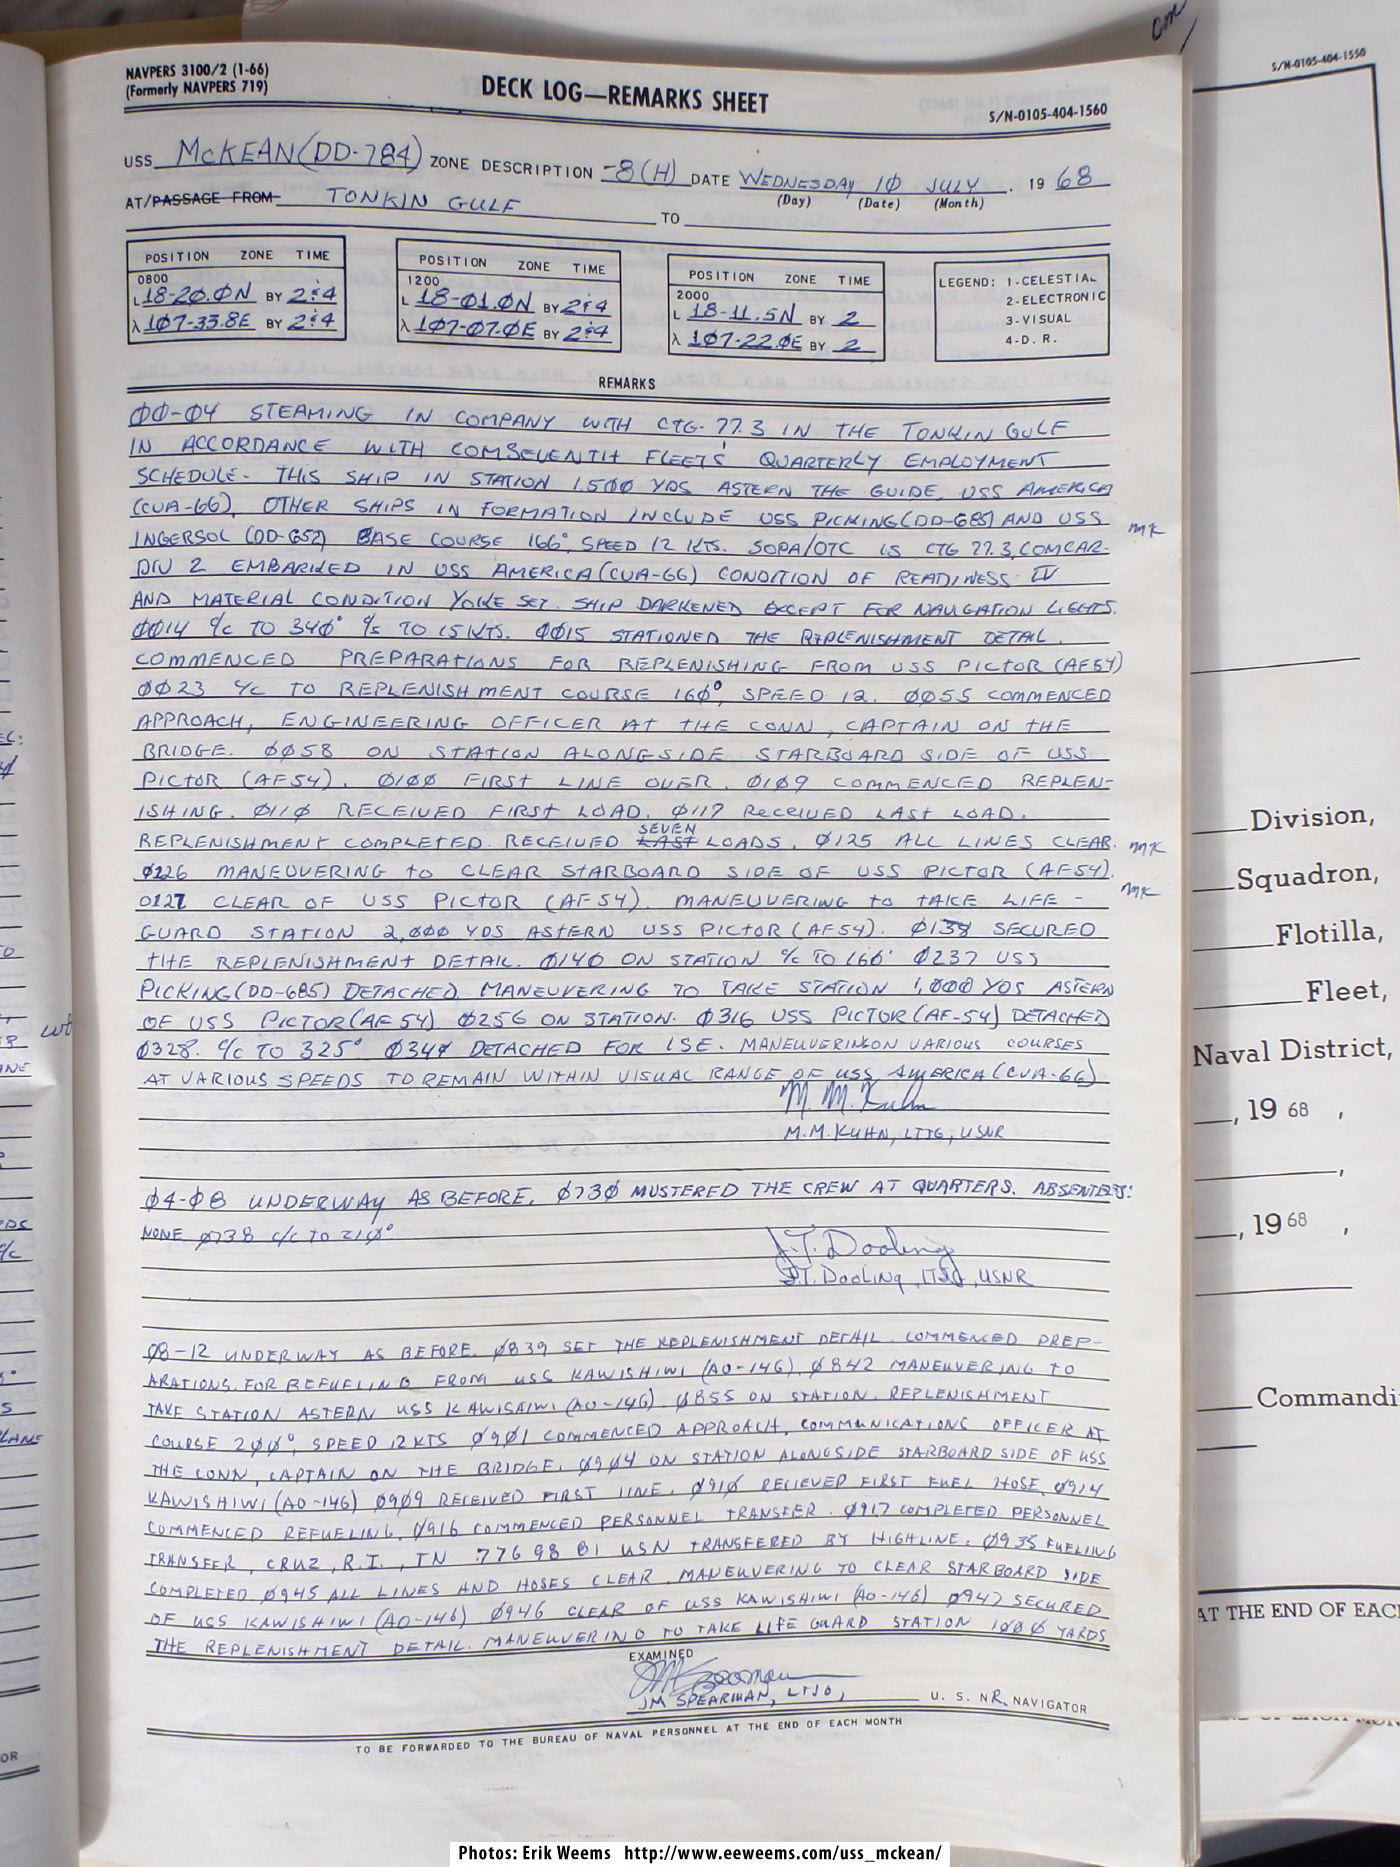 NAVPERS 3100/2 (1-66)
(Formerly NAVPERS 719)
DECK LOG—REMARKS SHEET
S/N-0105-404-1560
USS McKEAN (DD-784) ZONE DESCRIPTION -8(H) DATE WEDNESDAY 10 JULY, 1968
(Day) (Date) (Month)
AT/PASSAGE FROM TONKIN GULF TO
POSITION ZONE TIME
0800
L 18-20.0N BY 2&4
λ 107-33.8E BY 2&4
POSITION ZONE TIME
1200
L 18-01.0N BY 2&4
λ 107-07.0E BY 2&4
POSITION ZONE TIME
2000
L 18-11.5N BY 2
λ 107-22.0E BY 2
LEGEND: 1-CELESTIAL
2-ELECTRONIC
3-VISUAL
4-D. R.
REMARKS
00-04 STEAMING IN COMPANY WITH CTG-77.3 IN THE TONKIN GULF
IN ACCORDANCE WITH COMSEVENTH FLEET'S QUARTERLY EMPLOYMENT
SCHEDULE. THIS SHIP IN STATION 1500 YDS ASTERN THE GUIDE, USS AMERICA
(CVA-66). OTHER SHIPS IN FORMATION INCLUDE USS PICKING (DD-685) AND USS
INGERSOL (DD-652) BASE COURSE 166°, SPEED 12 KTS. SOPA/OTC IS CTG 77.3, COMCAR-
DIV 2 EMBARKED IN USS AMERICA (CVA-66) CONDITION OF READINESS IV
AND MATERIAL CONDITION YOKE SET. SHIP DARKENED EXCEPT FOR NAVIGATION LIGHTS.
0014 C/C TO 340° C/S TO 15 KTS. 0015 STATIONED THE REPLENISHMENT DETAIL.
COMMENCED PREPARATIONS FOR REPLENISHING FROM USS PICTOR (AF54)
0023 C/C TO REPLENISHMENT COURSE 160°, SPEED 12. 0055 COMMENCED
APPROACH, ENGINEERING OFFICER AT THE CONN, CAPTAIN ON THE
BRIDGE. 0058 ON STATION ALONGSIDE STARBOARD SIDE OF USS
PICTOR (AF54). 0100 FIRST LINE OVER. 0109 COMMENCED REPLEN-
ISHING. 0110 RECEIVED FIRST LOAD. 0117 RECEIVED LAST LOAD.
REPLENISHMENT COMPLETED. RECEIVED LAST SEVEN LOADS. 0125 ALL LINES CLEAR.
0126 MANEUVERING TO CLEAR STARBOARD SIDE OF USS PICTOR (AF54).
0127 CLEAR OF USS PICTOR (AF54). MANEUVERING TO TAKE LIFE-
GUARD STATION 2,000 YDS ASTERN USS PICTOR (AF54). SECURED
THE REPLENISHMENT DETAIL. 0140 ON STATION C/C TO 166° 0237 USS
PICKING (DD-685) DETACHED. MANEUVERING TO TAKE STATION 1,000 YDS ASTERN
OF USS PICTOR (AF54) 0256 ON STATION. 0316 USS PICTOR (AF-54) DETACHED
0328. C/C TO 325° DETACHED FOR ISE. MANEUVERING ON VARIOUS COURSES
AT VARIOUS SPEEDS TO REMAIN WITHIN VISUAL RANGE OF USS AMERICA (CVA-66)
M. M. Kuhn
M.M. KUHN, LTJG, USNR
04-08 UNDERWAY AS BEFORE. 0730 MUSTERED THE CREW AT QUARTERS. ABSENTEES:
NONE 0738 C/C TO 210°
J.T. Dooling
J.T. Dooling, LTJG, USNR
08-12 UNDERWAY AS BEFORE. 0839 SET THE REPLENISHMENT DETAIL. COMMENCED PREP-
ARATIONS FOR REFUELING FROM USS KAWISHIWI (AO-146). 0842 MANEUVERING TO
TAKE STATION ASTERN USS KAWISHIWI (AO-146). 0855 ON STATION. REPLENISHMENT
COURSE 200°, SPEED 12 KTS 0901 COMMENCED APPROACH, COMMUNICATIONS OFFICER AT
THE CONN, CAPTAIN ON THE BRIDGE. 0904 ON STATION ALONGSIDE STARBOARD SIDE OF USS
KAWISHIWI (AO-146) 0909 RECEIVED FIRST LINE. 0910 RECIEVED FIRST FUEL HOSE. 0914
COMMENCED REFUELING. 0916 COMMENCED PERSONNEL TRANSFER. 0917 COMPLETED PERSONNEL
TRANSFER, CRUZ, R.I., TN 776 98 81 USN TRANSFERED BY HIGHLINE. 0935 FUELING
COMPLETED 0945 ALL LINES AND HOSES CLEAR. MANEUVERING TO CLEAR STARBOARD SIDE
OF USS KAWISHIWI (AO-146) 0946 CLEAR OF USS KAWISHIWI (AO-146) 0947 SECURED
THE REPLENISHMENT DETAIL. MANEUVERING TO TAKE LIFE GUARD STATION 1000 YARDS
EXAMINED
JM Spearman
JM SPEARMAN, LTJG, U. S. NR. NAVIGATOR
TO BE FORWARDED TO THE BUREAU OF NAVAL PERSONNEL AT THE END OF EACH MONTH
MK
MK
MK
S/N-0105-404-1550
Division,
Squadron,
Flotilla,
Fleet,
Naval District,
, 19 68 ,
, 19 68 ,
Commandi
AT THE END OF EACH
Photos: Erik Weems http://www.eeweems.com/uss_mckean/